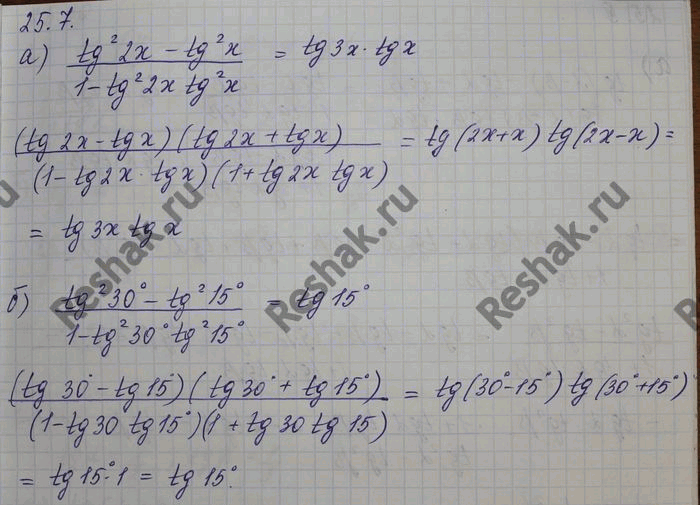 25.7.
а) tg²2x − tg²x / 1 − tg²2x tg²x = tg3x · tgx
(tg 2x − tgx)(tg 2x + tgx) / (1 − tg2x · tgx)(1 + tg2x tgx) = tg(2x+x) tg(2x−x) =
= tg 3x tg x
б) tg²30° − tg²15° / 1 − tg²30° tg²15° = tg 15°
(tg 30° − tg 15°)(tg 30° + tg 15°) / (1 − tg30 tg15°)(1 + tg30 tg 15) = tg(30°−15°) tg(30°+15°)
= tg15° · 1 = tg 15°.
Reshak.ru
Reshak.ru
Reshak.ru
Reshak.ru